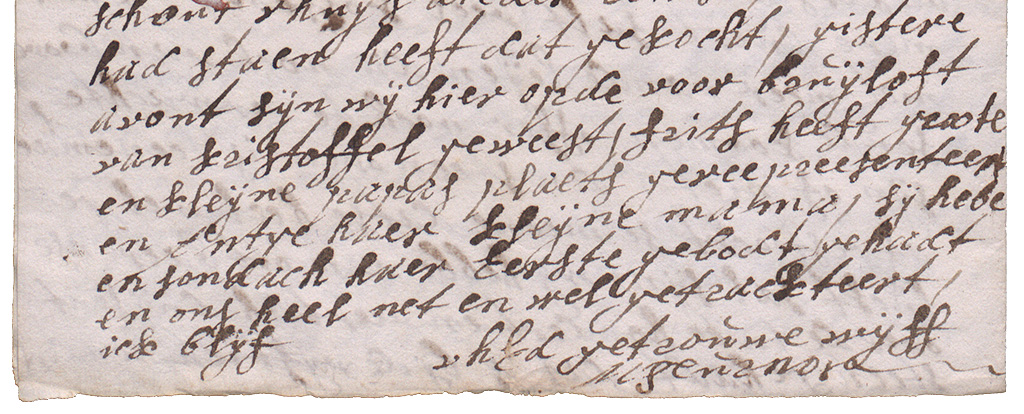 schout vhuys
had staen heeft dat gekockt, gistere
avont sÿn wÿ hier opde voor bruÿloft
van kristoffel geweest, frits heeft groote
en kleÿne papas plaets gereepreesenteert
en Antge haer kleÿne mama, sÿ hebe
en sondach haer Eerste gebodt gehadt
en ons heel net en wel getrackteert,
ick blÿf
vhEd getrouwe wÿff